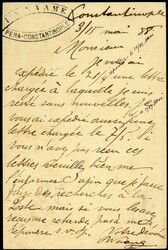 PERA-CONSTANTINOPLE
Constantinople
3/15 mai 88
Monsieur
Je vous ai
expédié le 21/3 une lettre
chargée à laquelle je suis
resté sans nouvelles, je
vous ai expédié aussi une
lettre chargée le 2/5. Si
vous n'avez pas reçu ces
lettres veuillez bien me
informer afin que je fasse
des recherches à la
Poste mais si vous les avez
reçu me retarde pas à me
répondre à vos
Votre dévoué